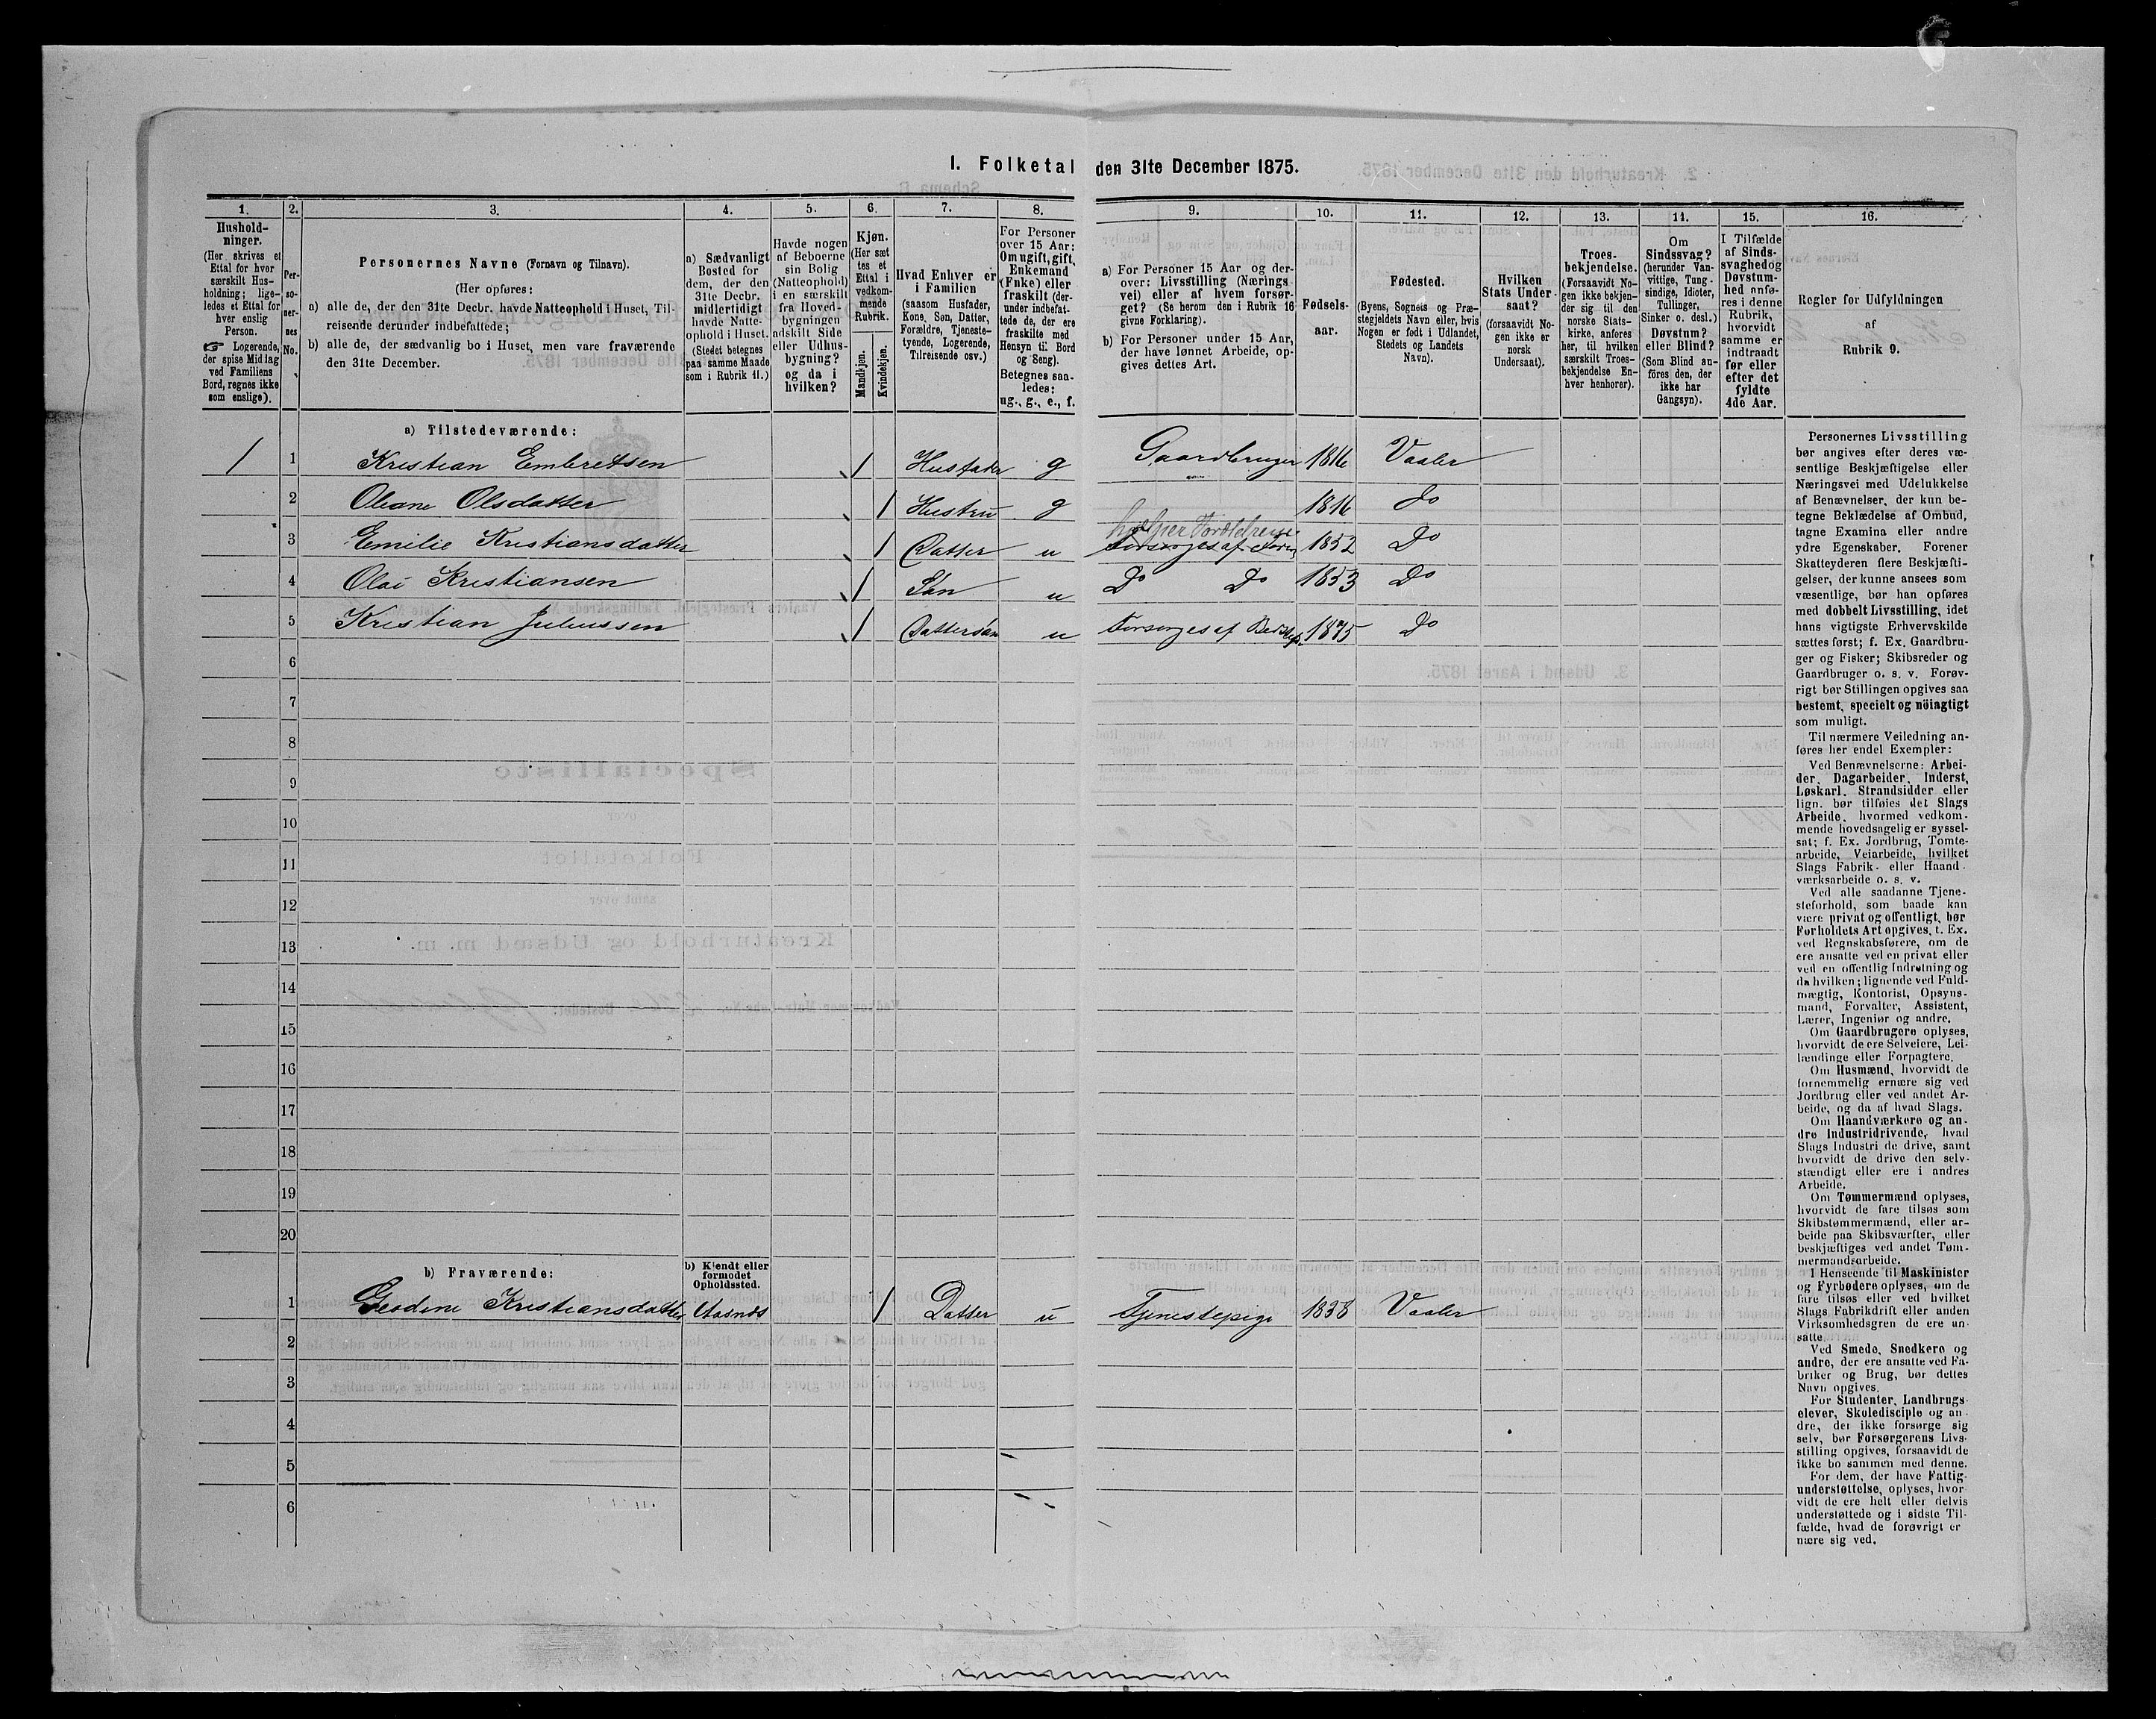 I. Folketal den 31te December 1875.
1. 2. 3. 4. 5. 6. 7. 8. 9. 10. 11. 12. 13. 14. 15. 16.
Hushold-
ninger.
(Her skrives et
Ettal for hver
særskilt Hus-
holdning; lige-
ledes et Ettal for
hver enslig
Person.
☞ Logerende,
der spise Middag
ved Familiens
Bord, regnes ikke
som enslige).
Per-
so-
ner-
nes
No.
Personernes Navne (Fornavn og Tilnavn).
(Her opføres:
a) alle de, der den 31te Decbr. havde Natteophold i Huset, Til-
reisende derunder indbefattede;
b) alle de, der sædvanlig bo i Huset, men vare fraværende
den 31te December.
a) Sædvanligt
Bosted for
dem, der den
31te Decbr.
midlertidigt
havde Natte-
ophold i Huset.
(Stedet betegnes
paa samme Maade
som i Rubrik 11.)
Havde nogen
af Beboerne
sin Bolig
(Natteophold)
i en særskilt
fra Hoved-
bygningen
adskilt Side
eller Udhus-
bygning?
og da i
hvilken?
Kjøn.
(Her sæt
tes et
Ettal i
vedkom-
mende
Rubrik.
Mandkjøn.
Kvindekjøn.
Hvad Enhver er
i Familien
(saasom Husfader,
Kone, Søn, Datter,
Forældre, Tjeneste-
tyende, Logerende,
Tilreisende osv.)
For Personer
over 15 Aar:
Om ugift, gift,
Enkemand
(Enke) eller
fraskilt (der-
under indbefat-
tede de, der ere
fraskilte med
Hensyn til Bord
og Seng).
Betegnes saa-
ledes:
ug., g., e., f.
a) For Personer 15 Aar og der-
over: Livsstilling (Nærings
vei) eller af hvem forsør-
get? (Se herom den i Rubrik 16
givne Forklaring).
b) For Personer under 15 Aar,
der have lønnet Arbeide, op-
gives dettes Art.
Fødsels-
aar.
Fødested.
(Byens, Sogneis og Præ-
stegjeldets Navn eller, hvis
Nogen er født i Udlandet,
Stedets og Landets
Navn).
Hvilken
Stats Under-
saat?
(forsaavidt No-
gen ikke er
norsk
Undersaat).
Troes-
bekjendelse.
(Forsaavidt No-
gen ikke bekjen-
der sig til den
norske Stats-
kirke, anføres
her, til hvilken
særskilt Troes-
bekjendelse En-
hver henhører).
Om
Sindssvag?
(herunder Van-
vittige, Tung-
sindige, Idioter,
Tullinger,
Sinker o. desl.)
Døvstum?
eller Blind?
(Som Blind an-
føres den, der
ikke har
Gangsyn).
I Tilfælde
af Sinds-
svaghed og
Døvstum-
hed anfø-
res i denne
Rubrik,
hvorvidt
samme er
indtraadt
før eller
efter det
fyldte
4de Aar.
Regler for Udfyldningen
af
Rubrik 9.
a) Tilstedeværende:
1 1 Kristian Embretsen 1 Husfader g Gaardbruger 1816 Vaaler
2 Oleane Olsdatter 1 Hustru g 1816 do
hjelper Forældrene
3 Emilie Kristiansdatter 1 Datter u Forsørges af 1852 Do
4 Olai Kristiansen 1 Søn u Do Do 1853 Do
5 Kristian Juliussen 1 Dattersøn u Forsørges af 1875 Do
6
7
8
9
10
11
12
13
14
15
16
17
18
19
20
b) Fraværende:
b) Kjendt eller
formodet
Opholdssted.
1 Kristiansdatter Aasnes 1 Datter u Tjenestepige 1838 Vaaler
2
3
4
5
6
Personernes Livsstilling
bør angives efter deres væ-
sentlige Beskjæftigelse eller
Næringsvei med Udelukkelse
af Benævnelser, der kun be-
tegne Beklædelse af Ombud,
tagne Examina eller andre
ydre Egenskaber. Forener
Skatteyderen flere Beskjæfti-
gelser, der kunne ansees som
væsentlige, bør han opføres
med dobbelt Livsstilling, idet
hans vigtigste Erhvervskilde
sættes først; f. Ex. Gaardbru-
ger og Fisker; Skibsreder og
Gaardbruger o. s. v. Forøv-
rigt bør Stillingen opgives saa
bestemt, specielt og nöiagtigt
som muligt.
Til nærmere Veiledning an-
føres her endel Exempler:
Ved Benævnelserne: Arbei-
der, Dagarbeider, Inderst,
Løskarl, Strandsidder eller
lign. bør tilføies det Slags
Arbeide, hvormed vedkom-
mende hovedsagelig er syssel-
sat; f. Ex. Jordbrug, Tomte-
arbeide, Veiarbeide, hvilket
Slags Fabrik- eller Haand-
værksarbeide o. s. v.
Ved alle saadanne Tjene-
steforhold, som baade kan
være privat og offentligt, bør
Forholdets Art opgives, t. Ex.
ved Regnskabsførere, om de
ere ansatte ved en privat eller
ved en offentlig Indretning og
da hvilken; lignende ved Fuld-
mægtig, Kontorist, Opsyns-
mand, Forvalter, Assistent,
Lærer, Ingeniør og andre.
Om Gaardbrugere oplyses,
hvorvidt de ere Selveiere, Lei-
lændinge eller Forpagtere.
Om Husmænd, hvorvidt de
fornemmelig ernære sig ved
Jordbrug eller ved andet Ar-
beide, og da af hvad Slags.
Om Haandværkere og an-
dre Industridrivende, hvad
Slags Industri de drive, samt
hvorvidt de drive den selv-
stændigt eller ere i andres
Arbeide.
Om Tømmermænd oplyses,
hvorvidt de fare tilsøs som
Skibstømmermænd, eller ar-
beide paa Skibsværfter, eller
beskjæftiges ved andet Tøm-
mermandsarbeide.
I Henseende til Maskinister
og Fyrbødere oplyses, om de
fare tilsøs eller ved hvilket
Slags Fabrikdrift eller anden
Virksomhedsgren de ere an-
satte.
Ved Smede, Snedkere og
andre, der ere ansatte ved Fa-
briker og Brug, bør dettes
Navn opgives.
For Studenter, Landbrugs-
elever, Skoledisciple og an-
dre, der ikke forsørge sig
selv, bør Forsørgerens Livs-
stilling opgives, forsaavidt de
ikke bo sammen med denne.
For dem, der have Fattig-
understøttelse, oplyses, hvor-
vidt de ere helt eller delvis
understøttede og i sidste Til-
fælde, hvad de forøvrigt er
nære sig ved.